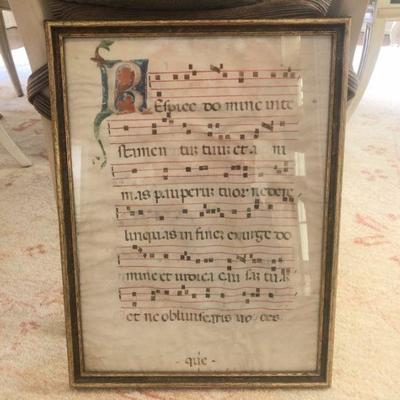 Respice domine in te
stamen tum tuum et ani
mas pauperum tuorum ne dere
linquas in finem exurge do
mine et iudica causam tuam
et ne obliviscaris voces
- que -